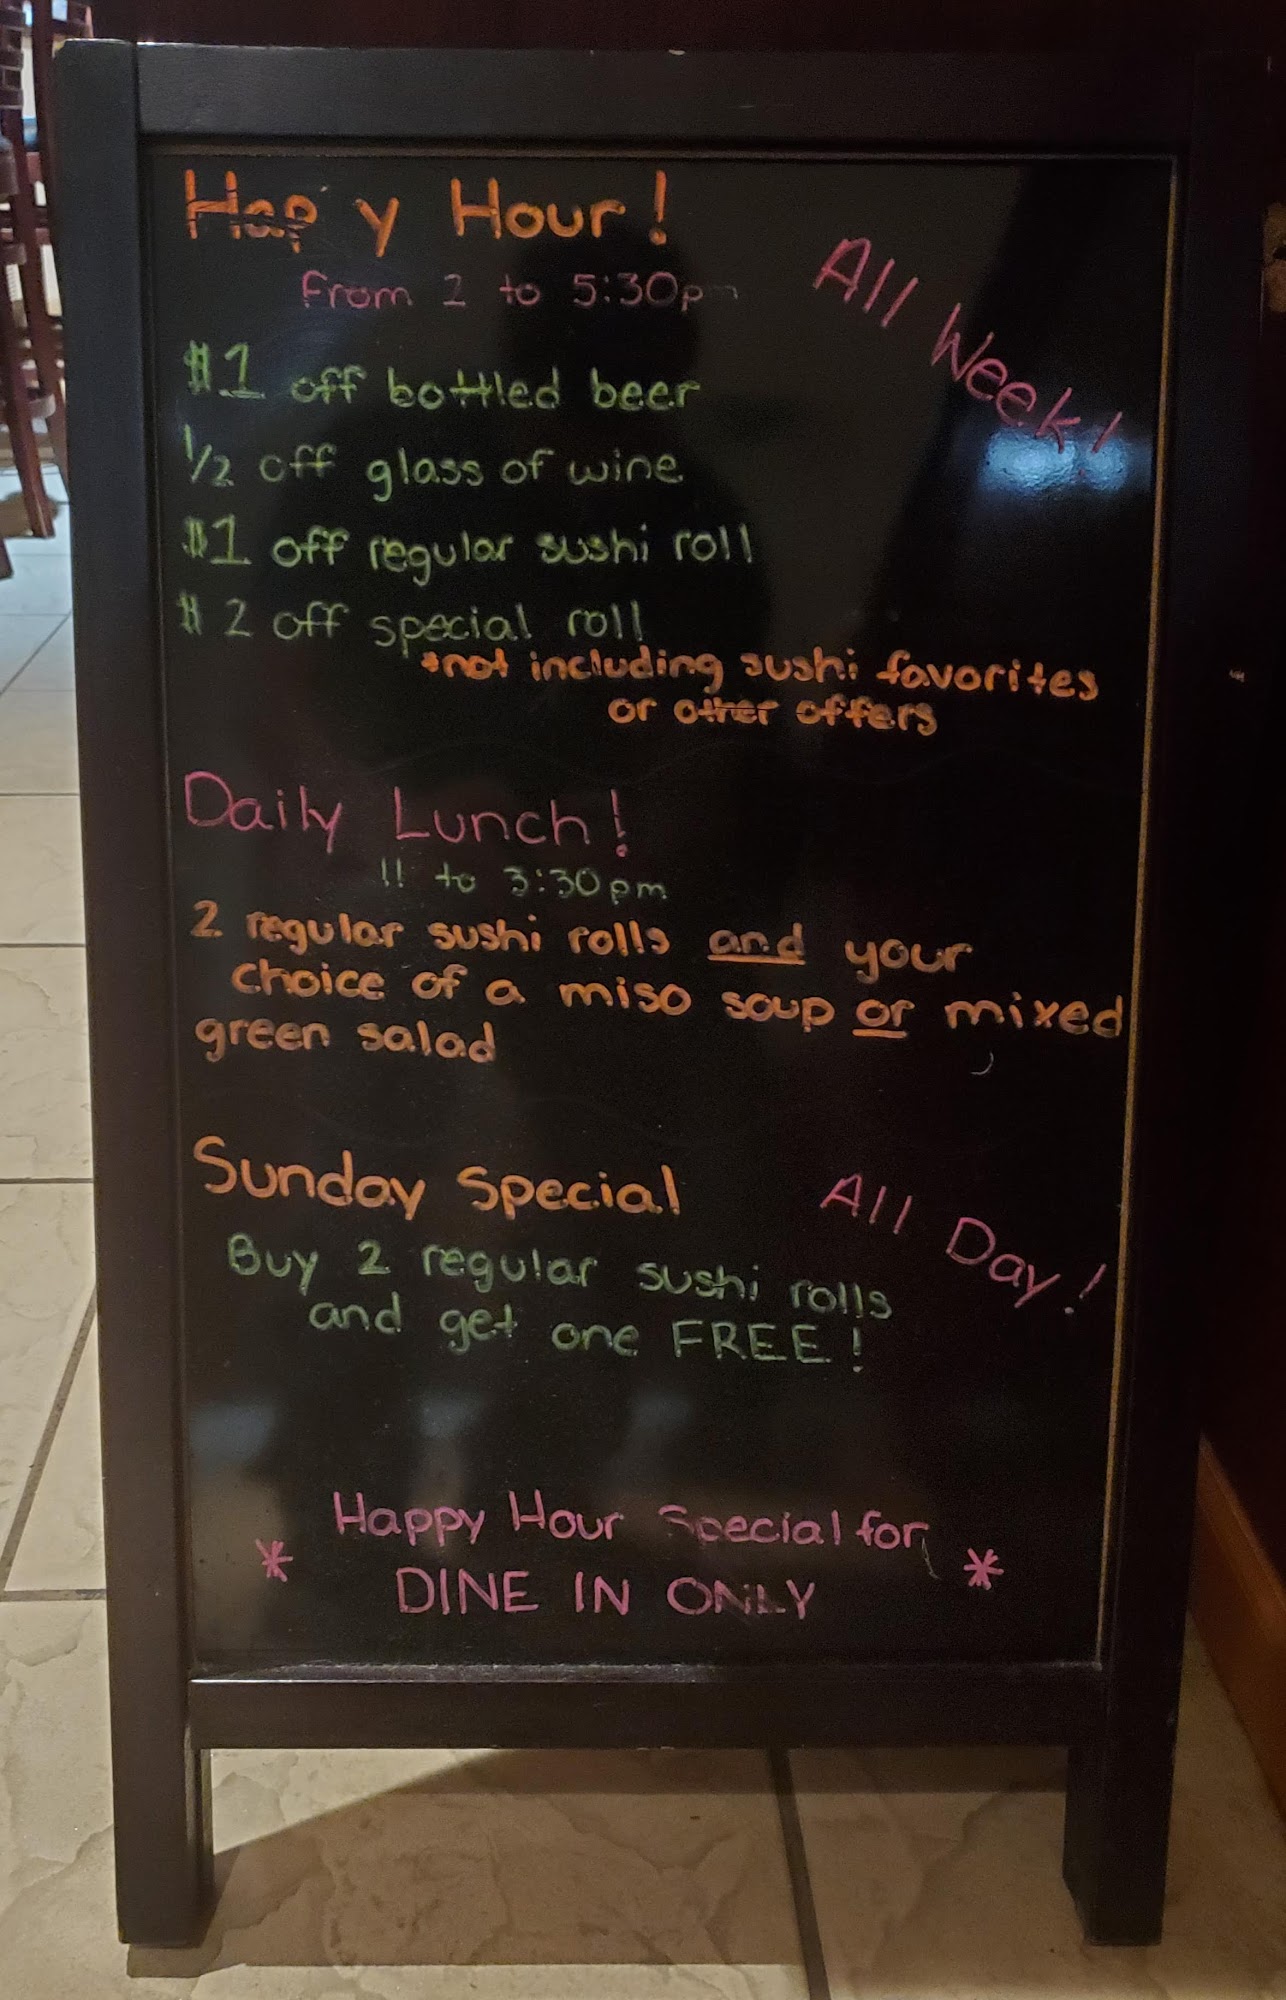 Hap y Hour!
From 2 to 5:30p
All Week!
$1 off bottled beer
1/2 off glass of wine
$1 off regular sushi roll
$2 off special roll
*not including sushi favorites
or other offers
Daily Lunch!
11 to 3:30pm
2 regular sushi rolls and your
choice of a miso soup or mixed
green salad
Sunday Special
All Day!
Buy 2 regular sushi rolls
and get one FREE!
Happy Hour Special for
* DINE IN ONLY *